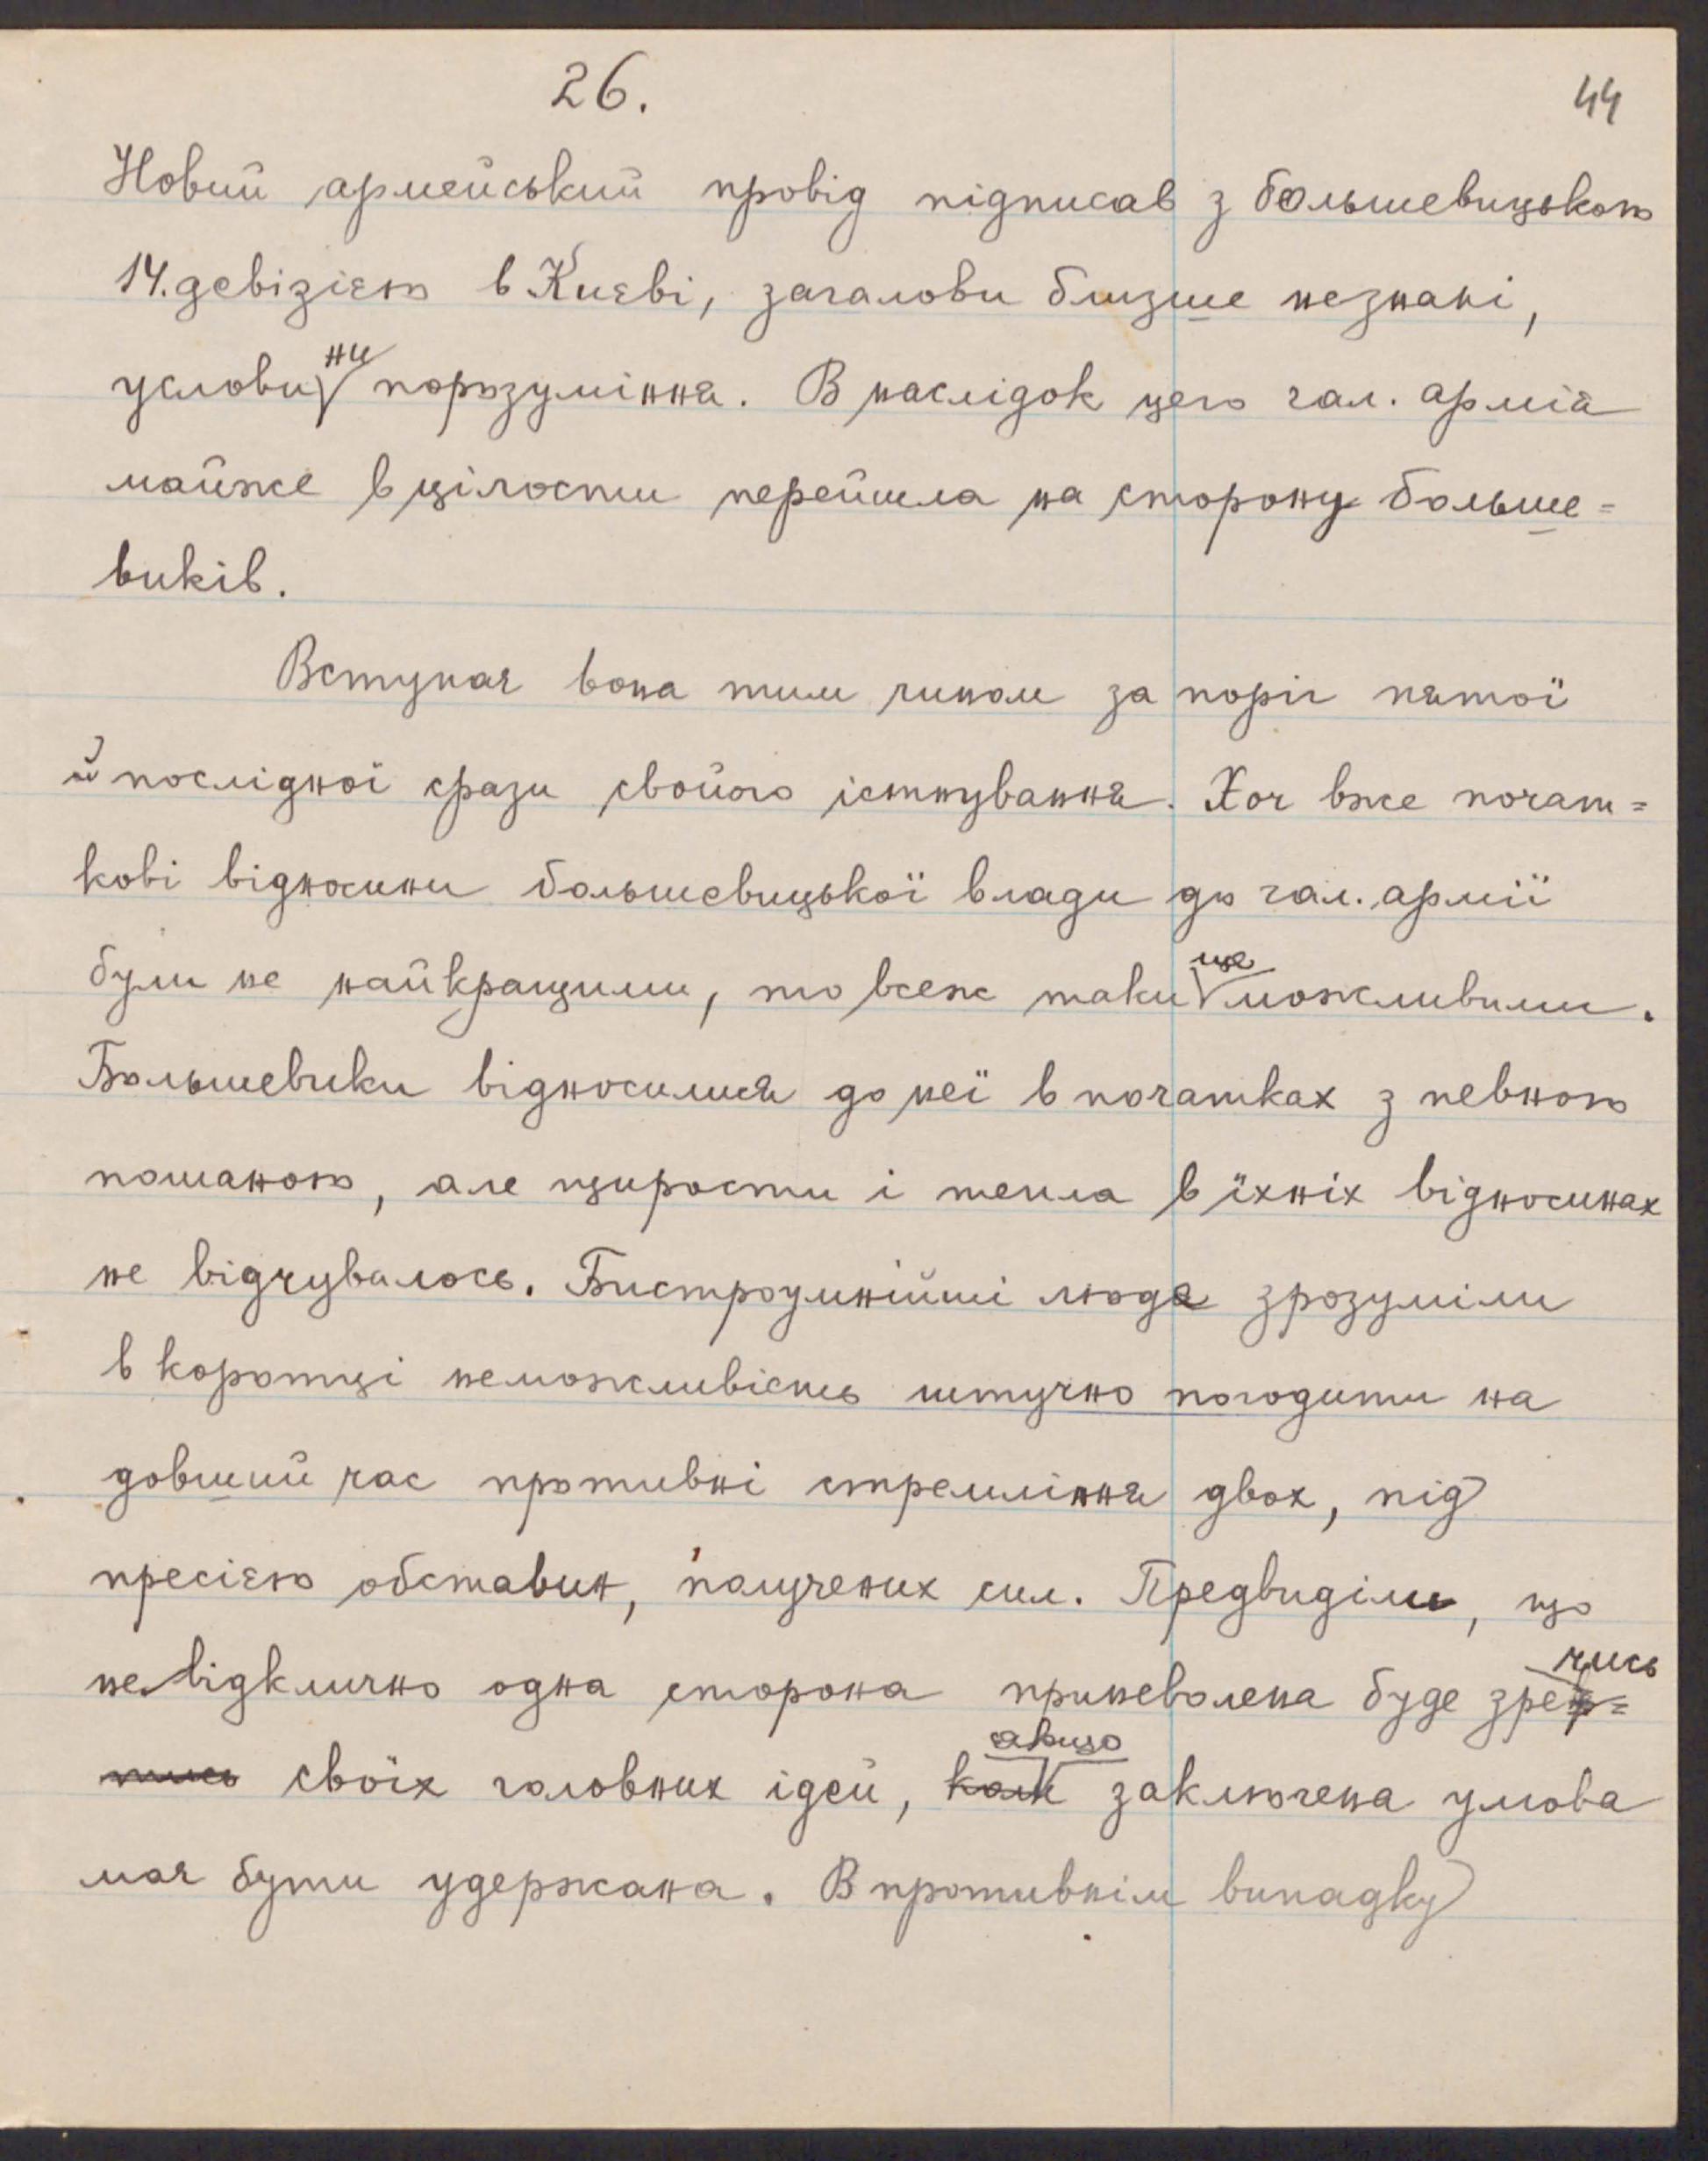 26.
44
Новий армейський провід підписав з большевицькою
14. девізією в Києві, загалови близше незнані,
услови ни порозуміння. В наслідок цего гал. армія
майже в цілости перейшла на сторону больше=
виків.
Вступає вона тим чином за поріг пятої
й послідної фази свойого істнування. Хоч вже почат=
кові відносини большевицької влади до гал. армії
були не найкращими, то всеж таки ще можливими.
Большевики відносилися до неї в початках з певною
пошаною, але щирости і тепла в їхніх відносинах
не відчувалось. Бистроумнійші люде зрозуміли
в коротці неможливість штучно погодити на
довший час противні стремління двох, під
пресією обставин, получених сил. Предвиділи, що
невідклично одна сторона приневолена буде зре чись
своїх головних ідей, коли якщо заключена умова
має бути удержана. В противнім випадку